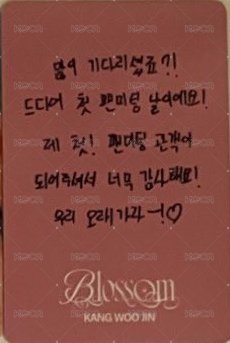 많이 기다리셨죠?!
드디어 첫 팬미팅 날이에요!
제 첫! 팬미팅 관객이
되어주셔서 너무 감사해요!
우리 오래가자~!♡
Blossom
KANG WOO JIN